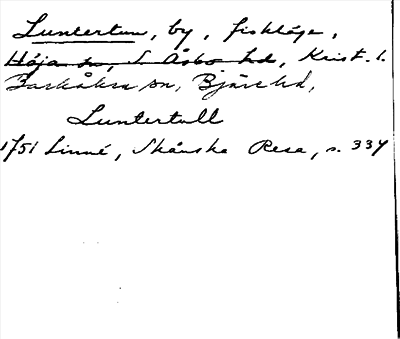 Luntertun, by, fiskläge,
Höja sn, S Åsbo hd, Krist. l.
Barkåkra sn, Bjäre hd,
Luntertull
1751 Linné, Skånska Resa, s. 337